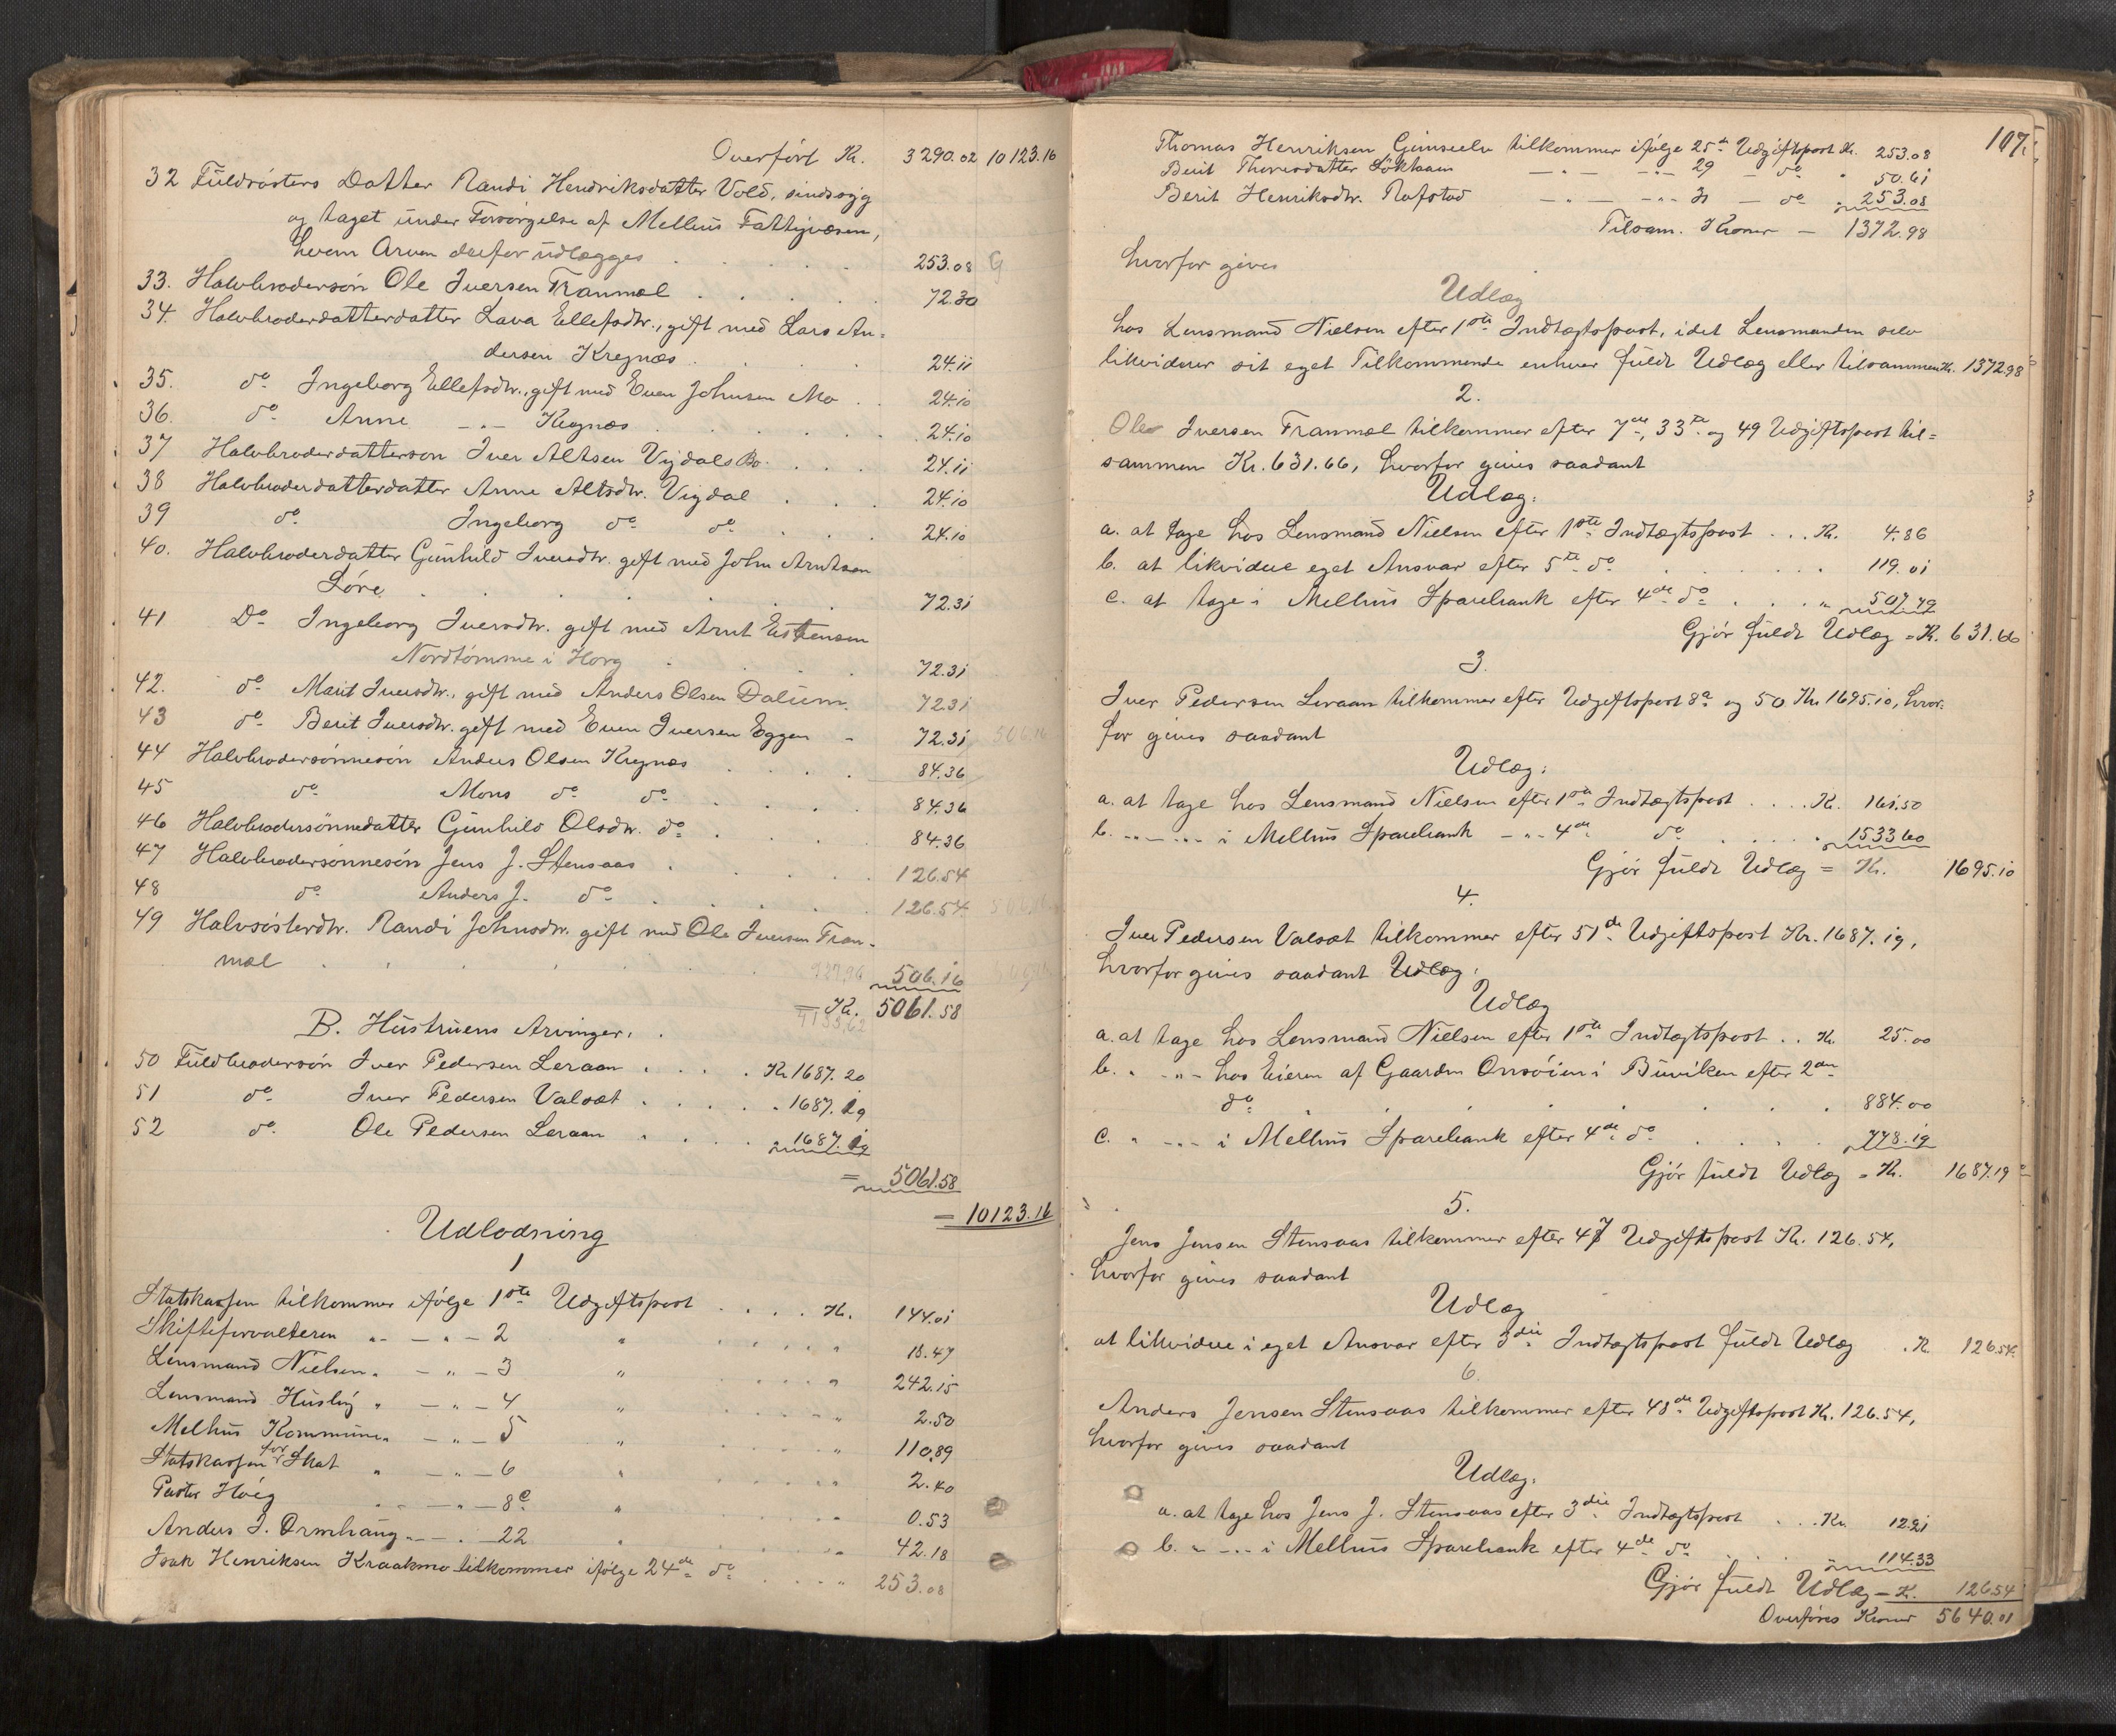 Overført Kr. 3290.02 10123.16
32 Fuldsøsters Datter Randi Hendriksdatter Vold, sindssyg
og taget under Forsørgelse af Melhus Fattigvæsen,
hvem Arven derfor udlægges . . . . . 253.08 G
33. Halvbrodersøn Ole Iversen Tranmæl . . . . . 72.30
34. Halvbroderdatterdatter Lava Ellefsdtr., gift med Lars An-
dersen Kregnæs . . . 24.11
35. do Ingeborg Ellefsdtr., gift med Even Johnsen Mo . . 24.10
36. do Anne -"- Kregnæs . . . . . 24.10
37 Halvbroderdatterson Iver Altsen Vigdals Bo. . . . 24.11
38 Halvbroderdatterdatter Anne Altsdtr. Vigdal . . . 24.10
39 do Ingeborg do do . . . 24.10
40. Halvbroderdatter Gunhild Iversdtr. gift med John Arntsen
Løre . . . . . . 72.31
41 Do Ingeborg Iversdtr. gift med Arnt Estensen
Nordtømme i Horg . . . . 72.31
42. do Marit Iversdtr., gift med Anders Olsen Dalum. 72.31
43 do Berit Iversdtr. gift med Even Iversen Eggen - 72.31 506.16
44 Halvbrodersønnesøn Anders Olsen Kregnæs . . . . 84.36
45 do Mons do do . . . . 84.36
46 Halvbrodersønnedatter Gunhild Olsdtr. do . . . . 84.36
47 Halvbrodersønnesøn Jens J. Stensaas . . . . . 126.54
48 do Anders J. do . . . . . 126.54 506.16
49 Halvsøsterdtr. Randi Johnsdtr. gift med Ole Iversen Tran-
mæl . . . . . . 506.16
= Kr. 5061.58
B. Hustruens Arvinger. .
50 Fuldbrodersøn Iver Pedersen Leraan . . . . Kr 1687.20
51 do Iver Pedersen Valsæt . . . . . " 1687.19
52 do Ole Pedersen Leraan . . . . " 1687.19
= 5061.58
= 10123.16
Udlodning
1
Statskassen tilkommer ifølge 1ste Udgiftspost . . . . Kr. 144.01
Skifteforvalteren " — " — 2 " . . . . " 18.47
Lensmand Nielsen " — " — 3 " . . . . " 242.15
Lensmand Husby " — " — 4 " . . . . " 2.50
Melhus Kommune " — " — 5 " . . . . " 110.89
Statskassen for Skat " — " — 6 " . . . . " 2.40
Pastor Høeg " — " — 8c " . . . . " 0.53
Anders J. Ormhaug " — " 22 " . . . . " 42.18
Isak Henriksen Kraakmo tilkommer ifølge 24de do . . . . " 253.08
107.
Thomas Henriksen Gimselv tilkommer ifølge 25de Udgiftspost Kr. 253.08
Berit Thoresdatter Løkhaan — " — — " — 29 — do " 50.61
Berit Henriksdtr. Rafstad — " — — " — 31 — do " 253.08
Tilsam. Kroner — 1372.98
hvorfor gives
Udlæg
hos Lensmand Nielsen efter 1ste Indtægtspost, idet Lensmanden selv
likviderer sit eget Tilkommende enhver fuldt Udlæg eller tilsammen Kr. 1372.98
2.
Ole Iversen Tranmæl tilkommer efter 7de, 33te og 49 Udgiftspost til=
sammen Kr. 631.66, hvorfor gives saadant
Udlæg:
a. at tage hos Lensmand Nielsen efter 1ste Indtægtspost . . . Kr. 4.86
b. at likvidere eget Ansvar efter 5te do . . . . . . 119.01
c. at tage i Melhus Sparebank efter 4de do . . . . " 507.79
Gjør fuldt Udlæg = Kr. 631.66
3.
Iver Pedersen Leraan tilkommer efter Udgiftspost 8a og 50 Kr. 1695.10, hvor-
for gives saadant
Udlæg:
a. at tage hos Lensmand Nielsen efter 1ste Indtægtspost . . . . Kr. 161.50
b. " — " i Melhus Sparebank — " — 4de do . . . . " 1533.60
Gjør fuldt Udlæg = Kr. 1695.10
4.
Iver Pedersen Valsæt tilkommer efter 51de Udgiftspost Kr. 1687.19,
hvorfor gives saadant Udlæg:
Udlæg
a. at tage hos Lensmand Nielsen efter 1ste Indtægtspost . . Kr. 25.00
b. " — " — hos Eieren af Gaarden Onsøien i Buviken efter 2den
do . . . . . . . 884.00
c. " — " i Melhus Sparebank efter 4de do . . . . 778.19
Gjør fuldt Udlæg = Kr. 1687.19
5.
Jens Jensen Stensaas tilkommer efter 47 Udgiftspost Kr. 126.54,
hvorfor gives saadant
Udlæg
at likvidere i eget Ansvar efter 3die Indtægtspost fuldt Udlæg . Kr. 126.54
6.
Anders Jensen Stensaas tilkommer efter 48de Udgiftspost Kr. 126.54,
hvorfor gives saadant
Udlæg:
a. at tage hos Jens J. Stensaas efter 3die Indtægtspost . . . Kr. 12.21
b. " — " i Melhus Sparebank efter 4de do . . . . " 114.33
Gjør fuldt Udlæg = Kr. 126.54
Overføres Kroner 5640.01